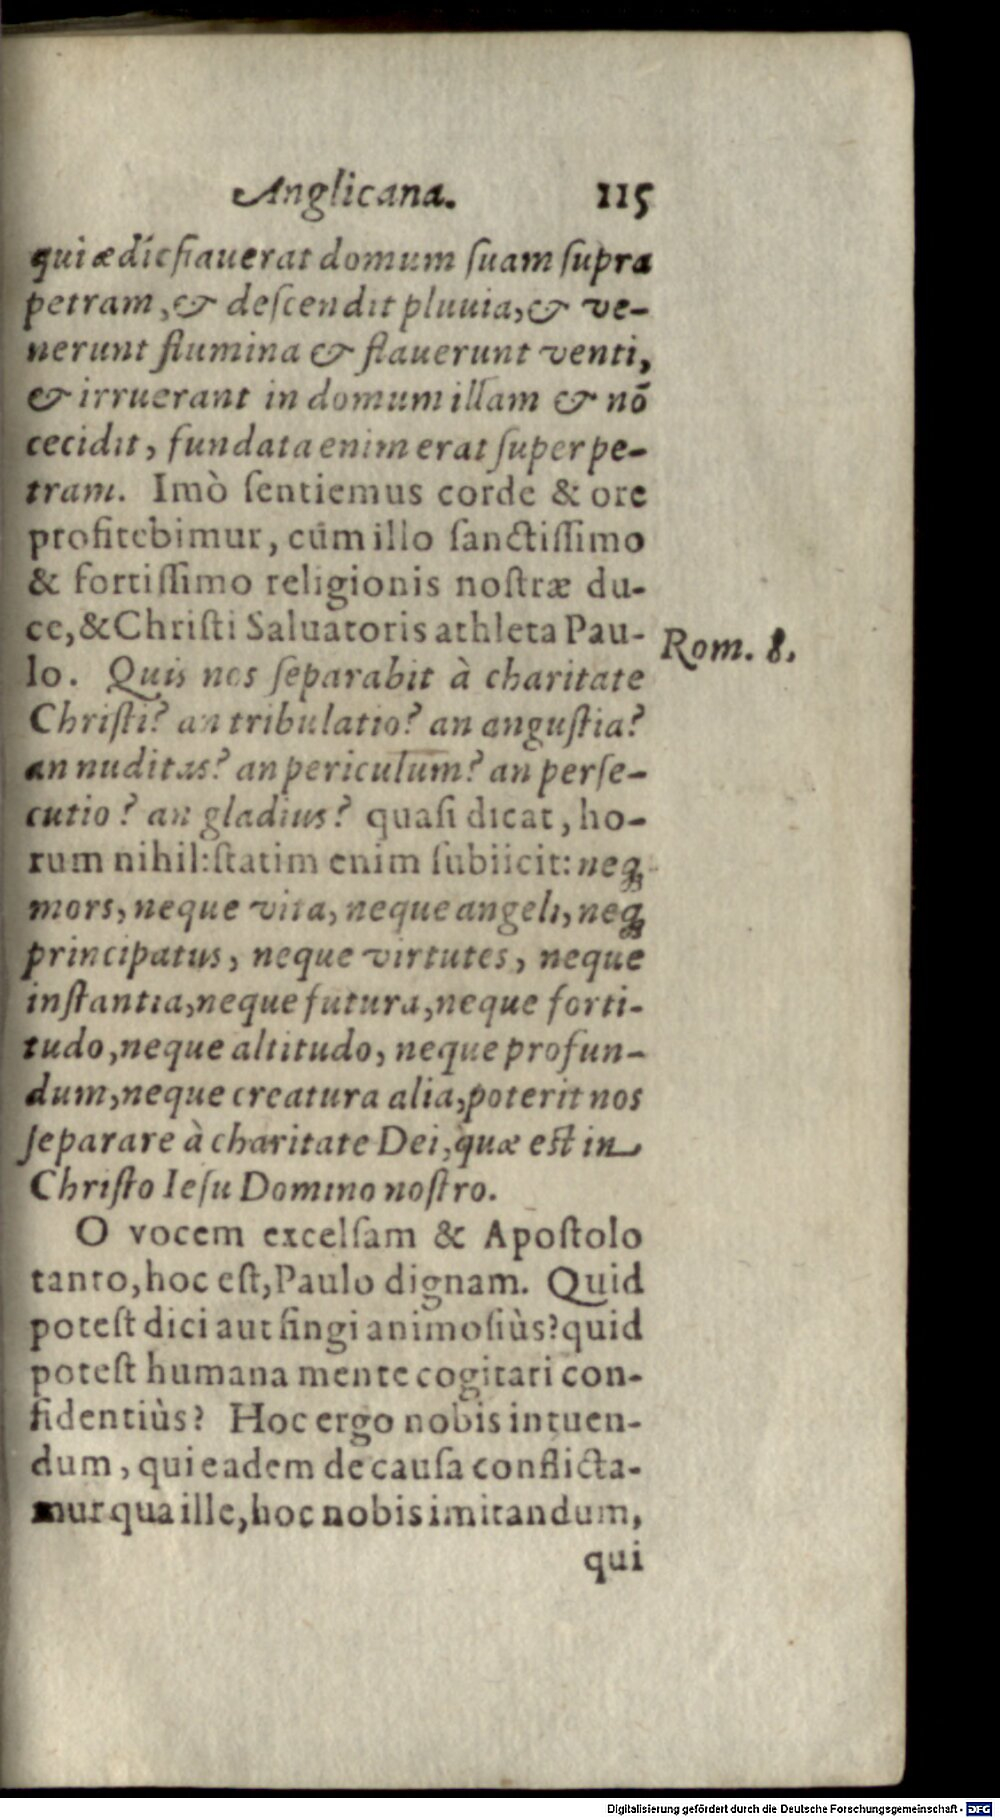 Anglicana. 115
qui ædificauerat domum ſuam ſupra
petram, & deſcendit pluuia, & ve-
nerunt flumina & flauerunt venti,
& irruerant in domum illam & nõ
cecidit, fundata enim erat ſuper pe-
tram. Imò ſentiemus corde & ore
profitebimur, cùm illo ſanctiſſimo
& fortiſſimo religionis noſtræ du-
ce, & Chriſti Saluatoris athleta Pau-
lo. Quis nos ſeparabit à charitate
Rom. 8.
Chriſti? an tribulatio? an anguſtia?
an nuditas? an periculum? an perſe-
cutio? an gladius? quaſi dicat, ho-
rum nihil: ſtatim enim ſubiicit: neq;
mors, neque vita, neque angeli, neq;
principatus, neque virtutes, neque
inſtantia, neque futura, neque forti-
tudo, neque altitudo, neque profun-
dum, neque creatura alia, poterit nos
ſeparare à charitate Dei, quæ eſt in
Chriſto Ieſu Domino noſtro.
O vocem excelſam & Apoſtolo
tanto, hoc eſt, Paulo dignam. Quid
poteſt dici aut fingi animoſiùs? quid
poteſt humana mente cogitari con-
fidentiùs? Hoc ergo nobis intuen-
dum, qui eadem de cauſa conflicta-
mur qua ille, hoc nobis imitandum,
qui
Digitalisierung gefördert durch die Deutsche Forschungsgemeinschaft - DFG